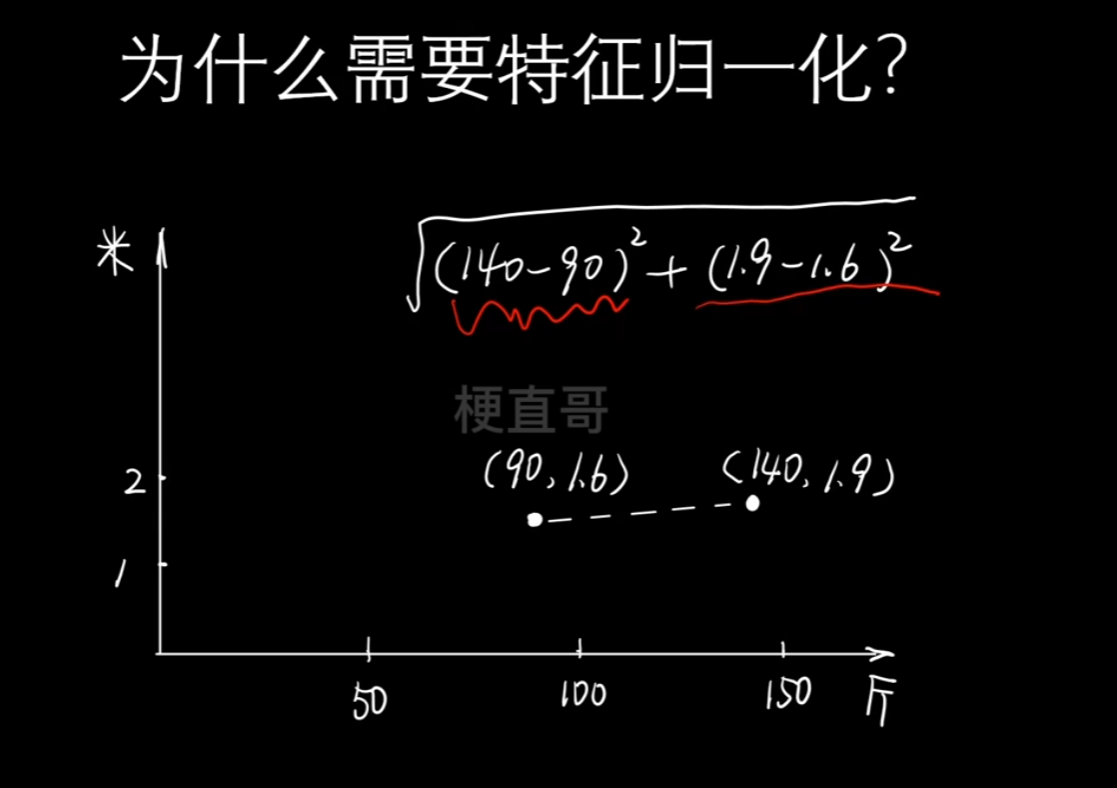 为什么需要特征归一化?
米
√(140-90)²+(1.9-1.6)²
梗直哥
(90,1.6) (140,1.9)
2
1
50 100 150 斤